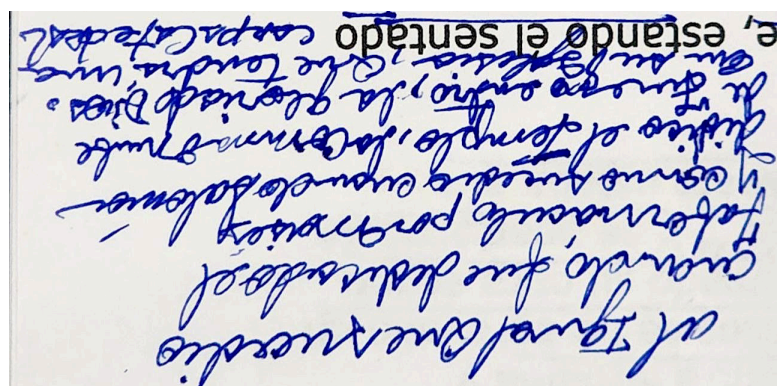 al Igual Que sucedio
cuando, fue dedicado el
Tabernaculo, por Moises
Y como sucedio cuando Salomon
dedico el Templo, la Columna o nube
de Fuego entro, la gloria de Dios.
en su Iglesia, Que tendra, una
e, estando él sentado